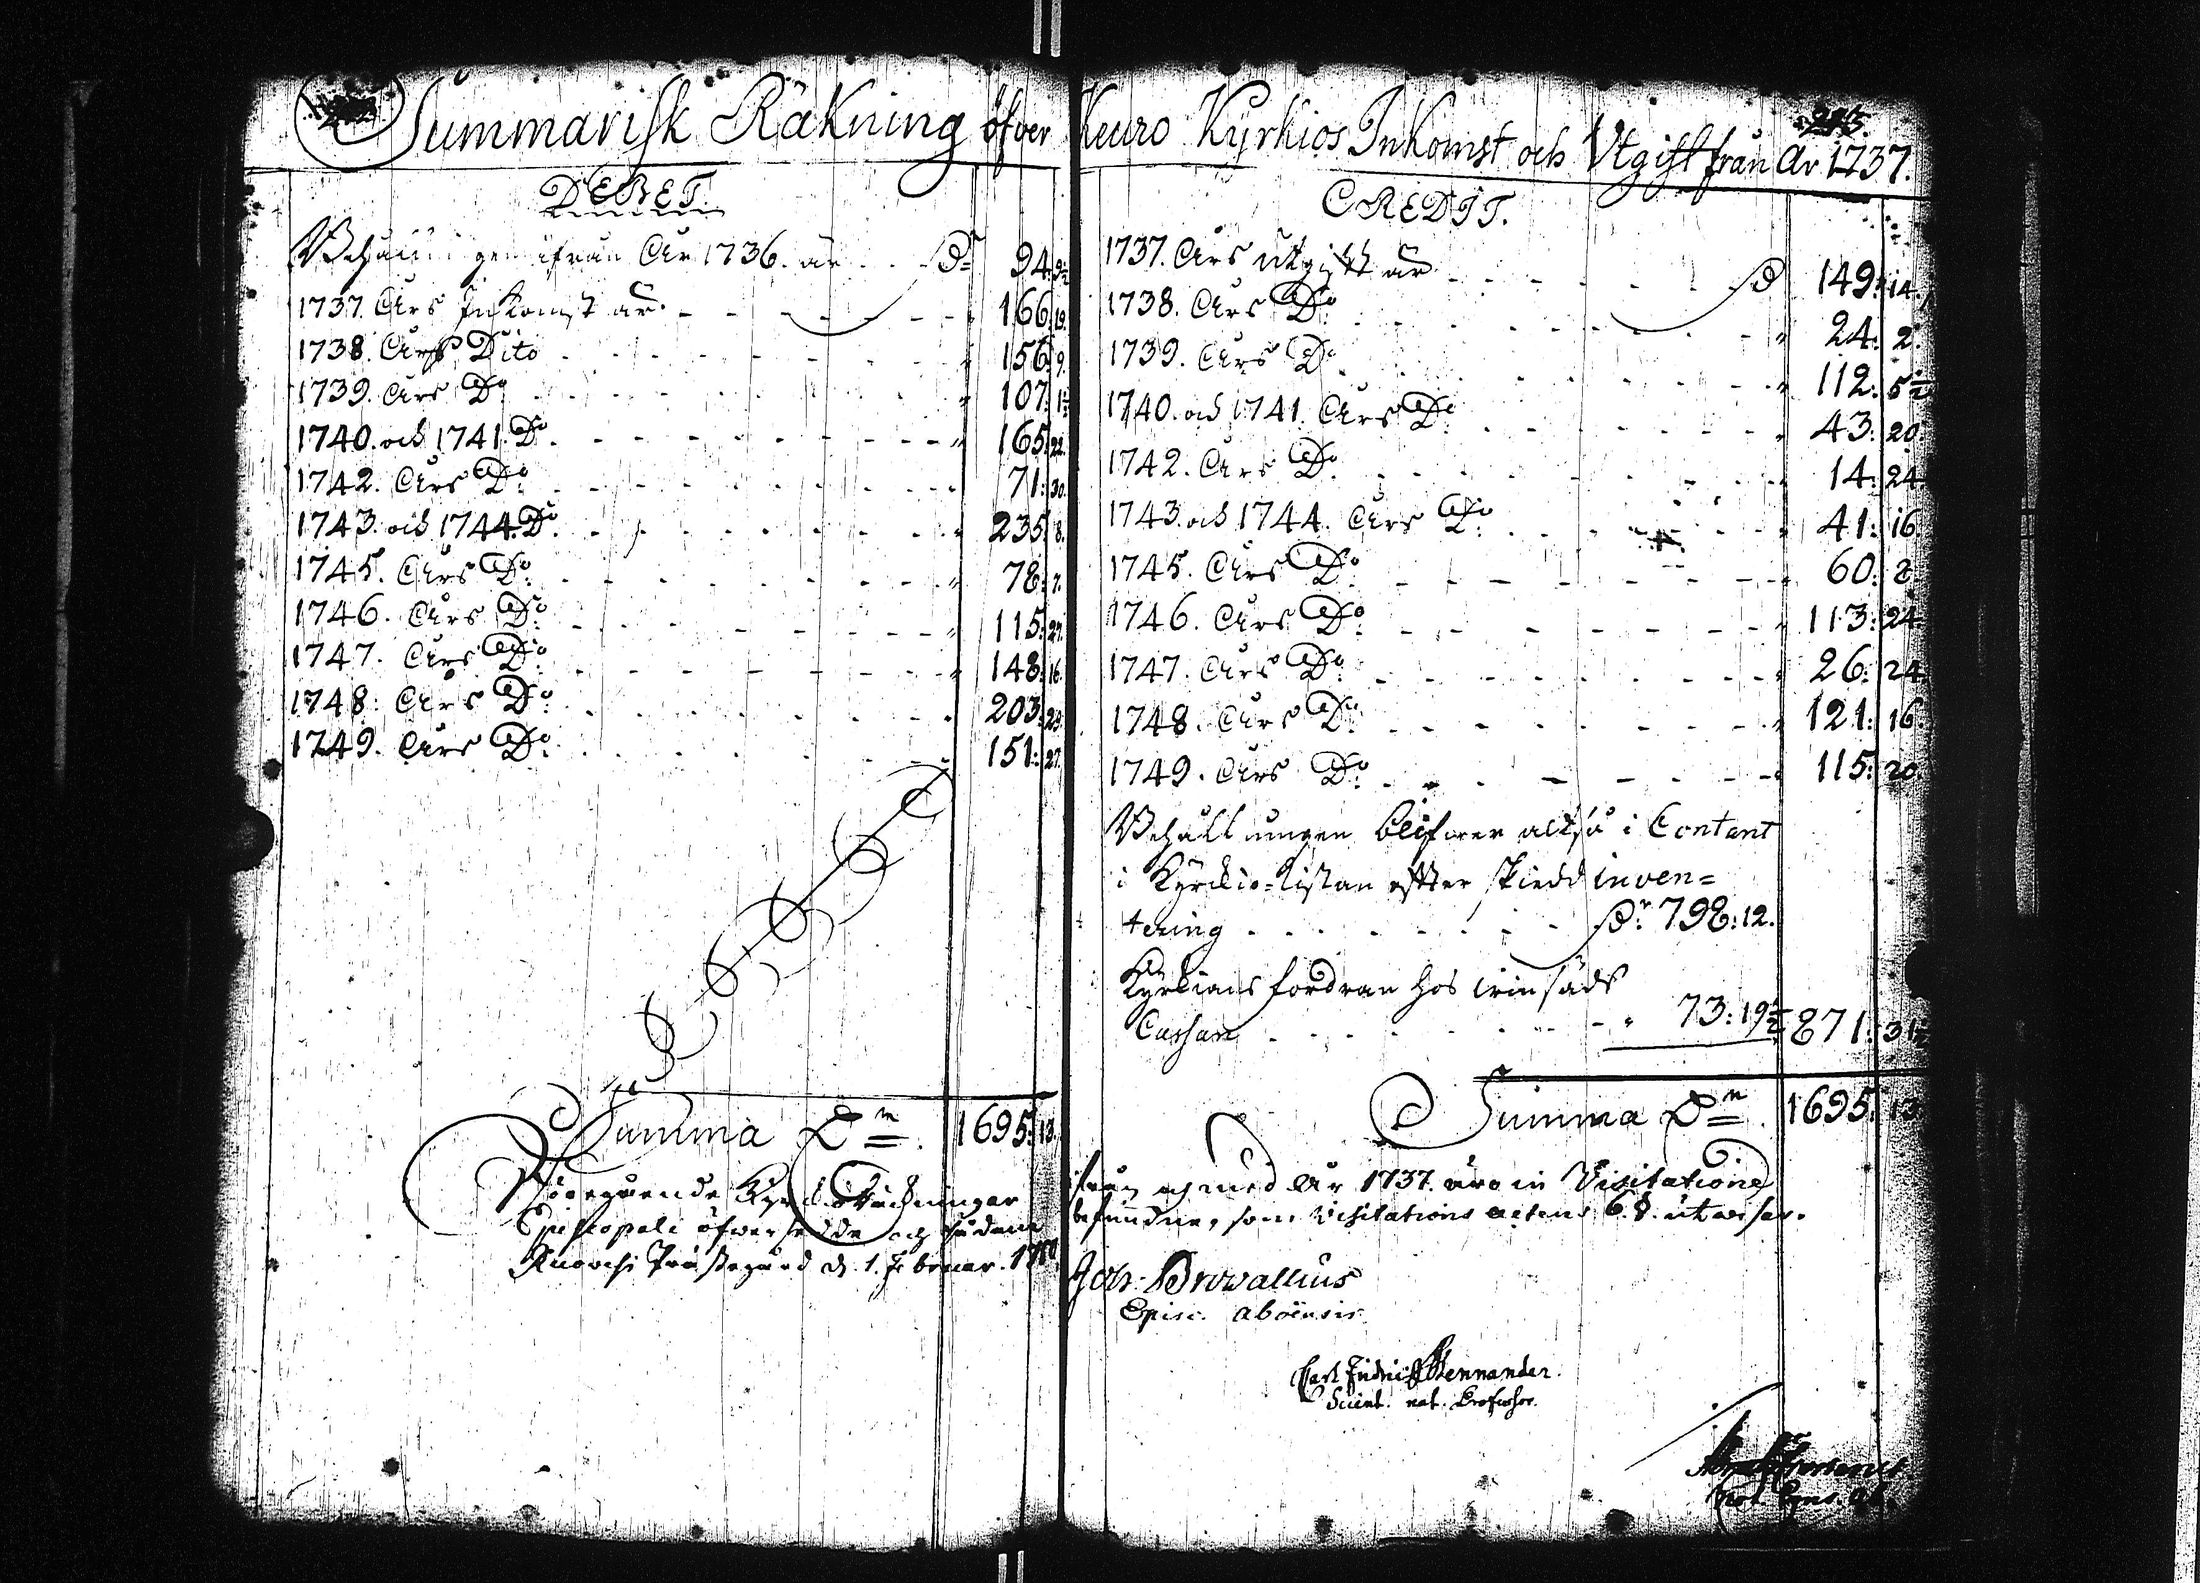 Summarisk Räkning öfver Keuro Kyrkios Inkomst och Utgift från År 1737.
DEBET.
Behållningen ifrån År 1736. är . . Dr 94: 9½
1737. Års Inkomst är. - - - - 166: 19.
1738. Års Dito . . . . " 156: 9.
1739. Års Do . . . . " 107: 1½
1740. och 1741. Do. - - - - " 165: 22.
1742. Års Do. . . . . " 71: 30.
1743. och 1744. Do. . . . . " 235: 8.
1745. Års Do. . . . . " 78: 7.
1746. Års Do. - - - - " 115: 27.
1747. Års Do. - - - - " 148: 16.
1748. Års Do. . . . . " 203: 29.
1749. Års Do. . . . . " 151: 27.
Summa Dr m 1695: 13.
CREDIT.
1737. Års utgift är - - - - D 149: 14.
1738. Års Do. . . . . " 24: 2.
1739. Års Do. . . . . " 112: 5½
1740. och 1741. Års Do. - - - - " 43: 20.
1742. Års Do. - - - - " 14: 24.
1743. och 1744. Års Do. . . . . " 41: 16.
1745. Års Do. - - - - " 60: 2
1746. Års Do. - - - - " 113: 24.
1747. Års Do. - - - - " 26: 24.
1748. Års Do. - - - - " 121: 16.
1749. Års Do. - - - - " 115: 20.
Behållningen blifwer altså i Contant
i Kyrckio-Kistan effter skiedd inven=
tering . . . . Dr 798: 12.
Kyrkians fordran hos
Cassan . . . . " 73: 19½ 871: 31½
Summa Dr m 1695: 13
Föregående Kyrckio Räckningar ifrån och med År 1737. äro in Visitatione
Episcopali öfwersedde och sådane befundne, som Visitations acten 6. §. utwisar.
Kuorehi Prästegård d. 1. Februar. 1750.
Joh: Browallius
Episc. Aboënsis
Carl Fridric Mennander.
Scient. nat. Professor.